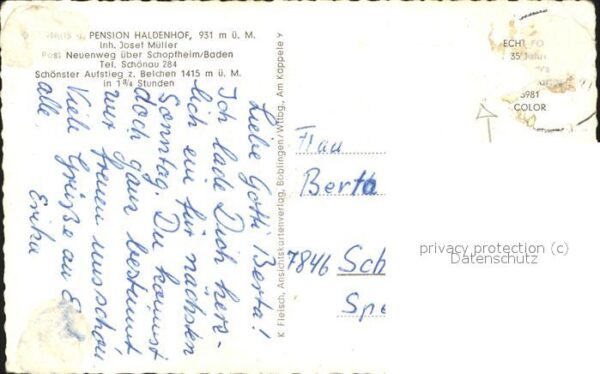 PENSION HALDENHOF, 931 m ü. M.
Inh. Josef Müller
Post Neuenweg über Schopfheim/Baden
Tel. Schönau 284
Schönster Aufstieg z. Belchen 1415 m ü. M.
in 1¾ Stunden
Liebe Gotti Berta!
Ich lade Dich herz-
lich ein für nächsten
Sonntag. Du kommst
doch ganz bestimmt,
wir freuen uns schon
alle. Viele Grüße an E
Erika
K. Fleisch, Ansichtskartenverlag, Böblingen/Wttbg., Am Käppele
ECHT FO
35
3981
COLOR
Frau
Berta
7846 Sch
Spe
privacy protection (c)
Datenschutz